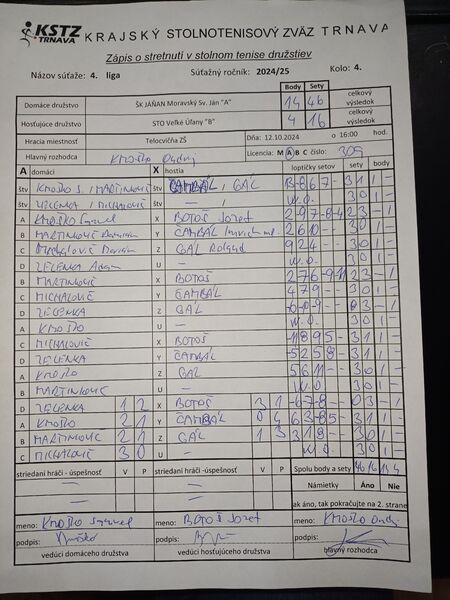 KSTZ TRNAVA KRAJSKÝ STOLNOTENISOVÝ ZVÄZ TRNAVA
Zápis o stretnutí v stolnom tenise družstiev
Názov súťaže: 4. liga Súťažný ročník: 2024/25 Kolo: 4.
Body Sety
Domáce družstvo ŠK JÁŇAN Moravský Sv. Ján "A" 14 46 celkový výsledok
Hosťujúce družstvo STO Veľké Úľany "B" 4 16 celkový výsledok
Hracia miestnosť Telocvičňa ZŠ Dňa: 12.10.2024 o 16:00 hod.
Hlavný rozhodca KMOŠKO Licencia: M A B C číslo: 309
A domáci X hostia loptičky setov sety body
štv KMOŠKO S. / MARTINKOVIČ štv ČAMBÁL / GÁL 3 1 1 -
štv ZELENKA / MICHALOVIČ štv - / - W.O. 3 0 1 -
A KMOŠKO Samuel X BOTOŠ Jozef 2 3 - 1
B MARTINKOVIČ Y ČAMBÁL 2 6 10 - - 3 0 1 -
C Z GÁL Roland 9 2 4 - - 3 0 1 -
D ZELENKA Adam U - W.O. 3 0 1 -
B MARTINKOVIČ X BOTOŠ 2 3 - 1
C MICHALOVIČ Y ČAMBÁL 4 7 9 - - 3 0 1 -
D ZELENKA Z GÁL 0 3 - 1
A KMOŠKO U - W.O. 3 0 1 -
C MICHALOVIČ X BOTOŠ 3 1 1 -
D ZELENKA Y ČAMBÁL 3 1 1 -
A KMOŠKO Z GÁL 5 6 11 - - 3 0 1 -
B MARTINKOVIČ U - W.O. 3 0 1 -
D ZELENKA 1 2 X BOTOŠ 3 1 0 3 - 1
A KMOŠKO 2 1 Y ČAMBÁL 0 4 3 1 1 -
B MARTINKOVIČ 2 1 Z GÁL 1 3 3 0 1 -
C MICHALOVIČ 3 0 U - W.O. 3 0 1 -
striedaní hráči - úspešnosť V P striedaní hráči -úspešnosť V P Spolu body a sety 46 16 14 4
Námietky Áno Nie
ak áno, tak pokračujte na 2. strane
meno: KMOŠKO Samuel meno: BOTOŠ Jozef meno: KMOŠKO
podpis: podpis: podpis:
vedúci domáceho družstva vedúci hosťujúceho družstva hlavný rozhodca